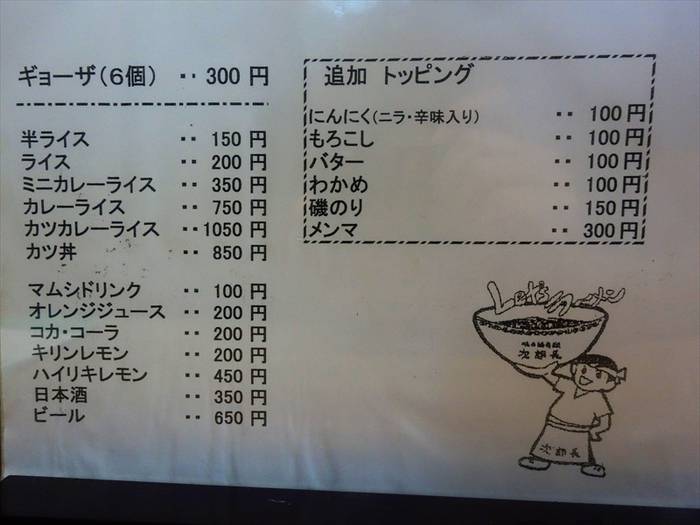 ギョーザ(6個) ・・ 300 円
半ライス ・・ 150 円
ライス ・・ 200 円
ミニカレーライス ・・ 350 円
カレーライス ・・ 750 円
カツカレーライス ・・1050 円
カツ丼 ・・ 850 円
マムシドリンク ・・ 100 円
オレンジジュース ・・ 200 円
コカ・コーラ ・・ 200 円
キリンレモン ・・ 200 円
ハイリキレモン ・・ 450 円
日本酒 ・・ 350 円
ビール ・・ 650 円
追加 トッピング
にんにく(ニラ・辛味入り) ・・ 100 円
もろこし ・・ 100 円
バター ・・ 100 円
わかめ ・・ 100 円
磯のり ・・ 150 円
メンマ ・・ 300 円
Let'sラーメン
次郎長
次郎長